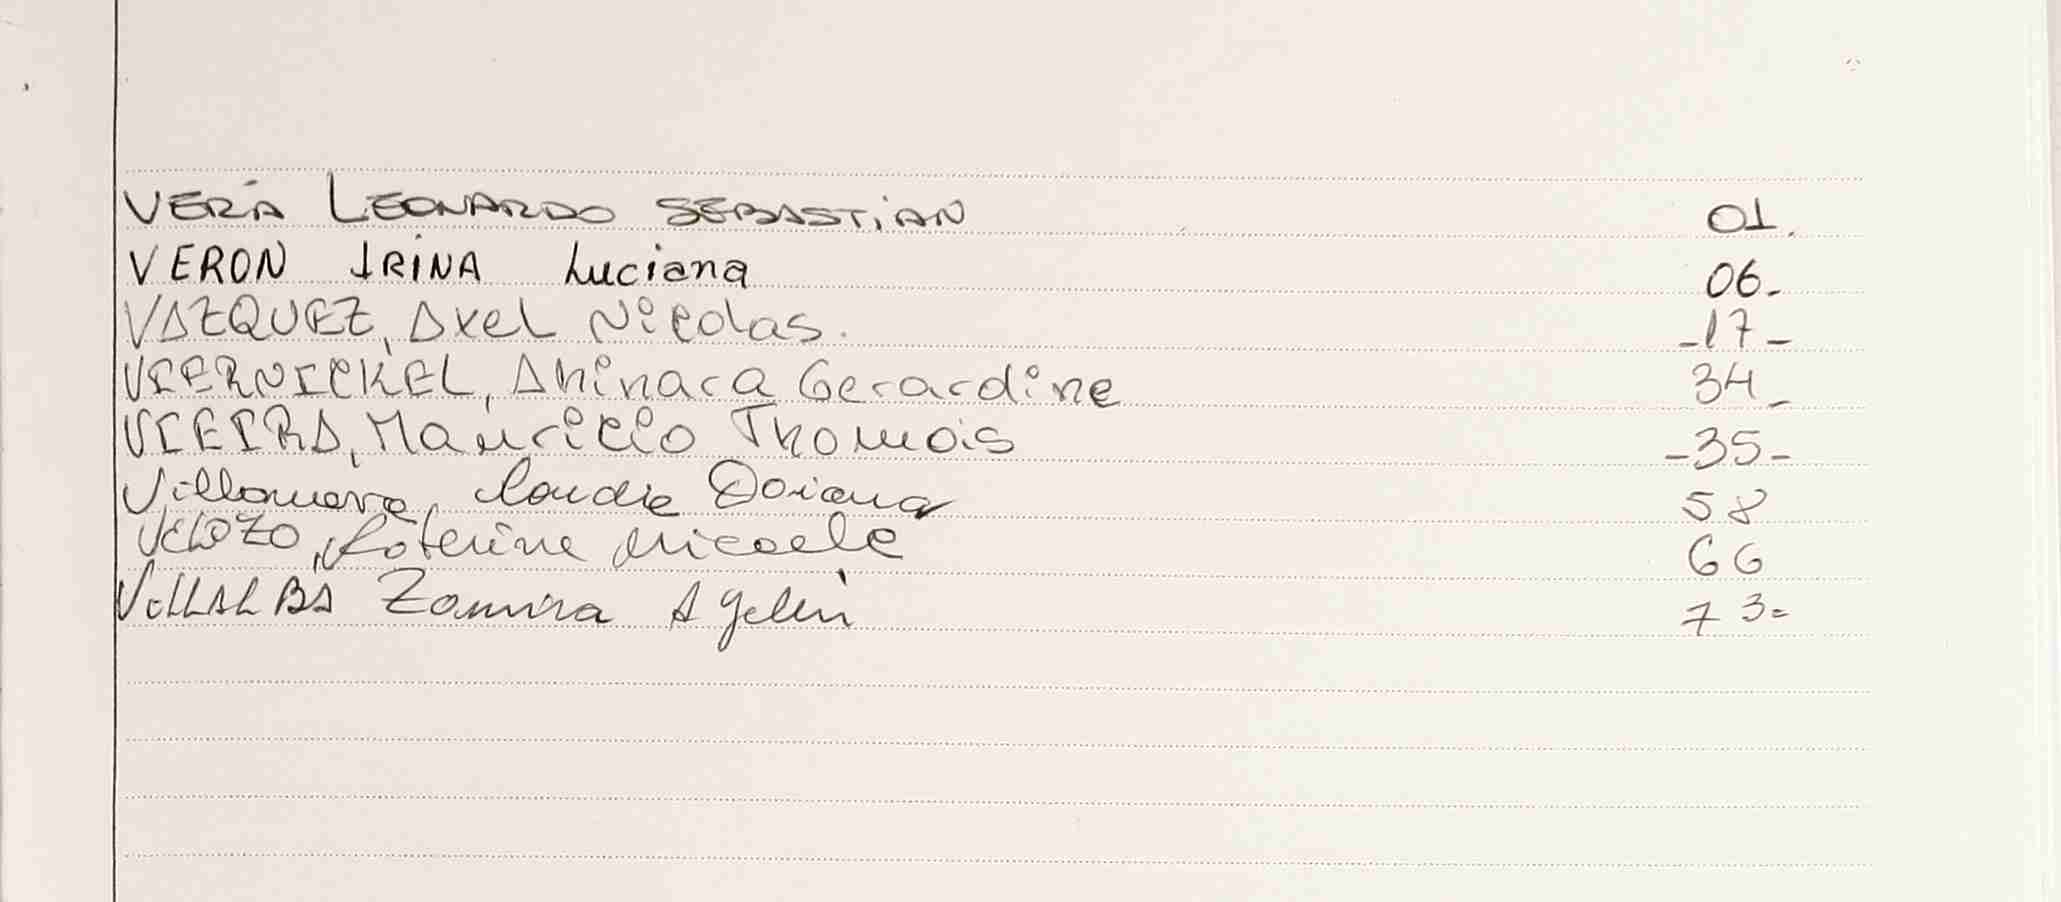 VERA LEONARDO SEBASTIAN 01.
VERON IRINA Luciana 06-
VAZQUEZ, Axel Nicolas. -17-
VIERNICKEL, Ahinara Gerardine 34-
VIEIRA, Mauricio Thomois -35-
Villanueva, Claudia Daiana 58
VELOZO, Katerine Micaele 66
VILLALBA Zamira Ayelén 73=